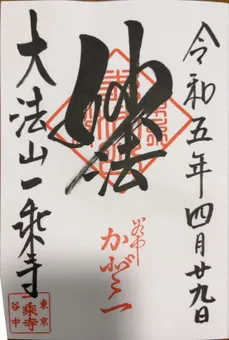 令和五年四月廿九日
妙法
谷中
大法山一乘寺
東京
谷中
一乗寺